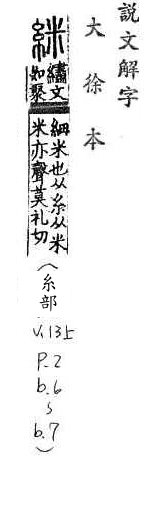 説文解字
大徐本
䋛
繡文
如聚
細米也从糸从米
米亦聲莫礼切
(糸部
V.13上
P.2
b.6
~
b.7)